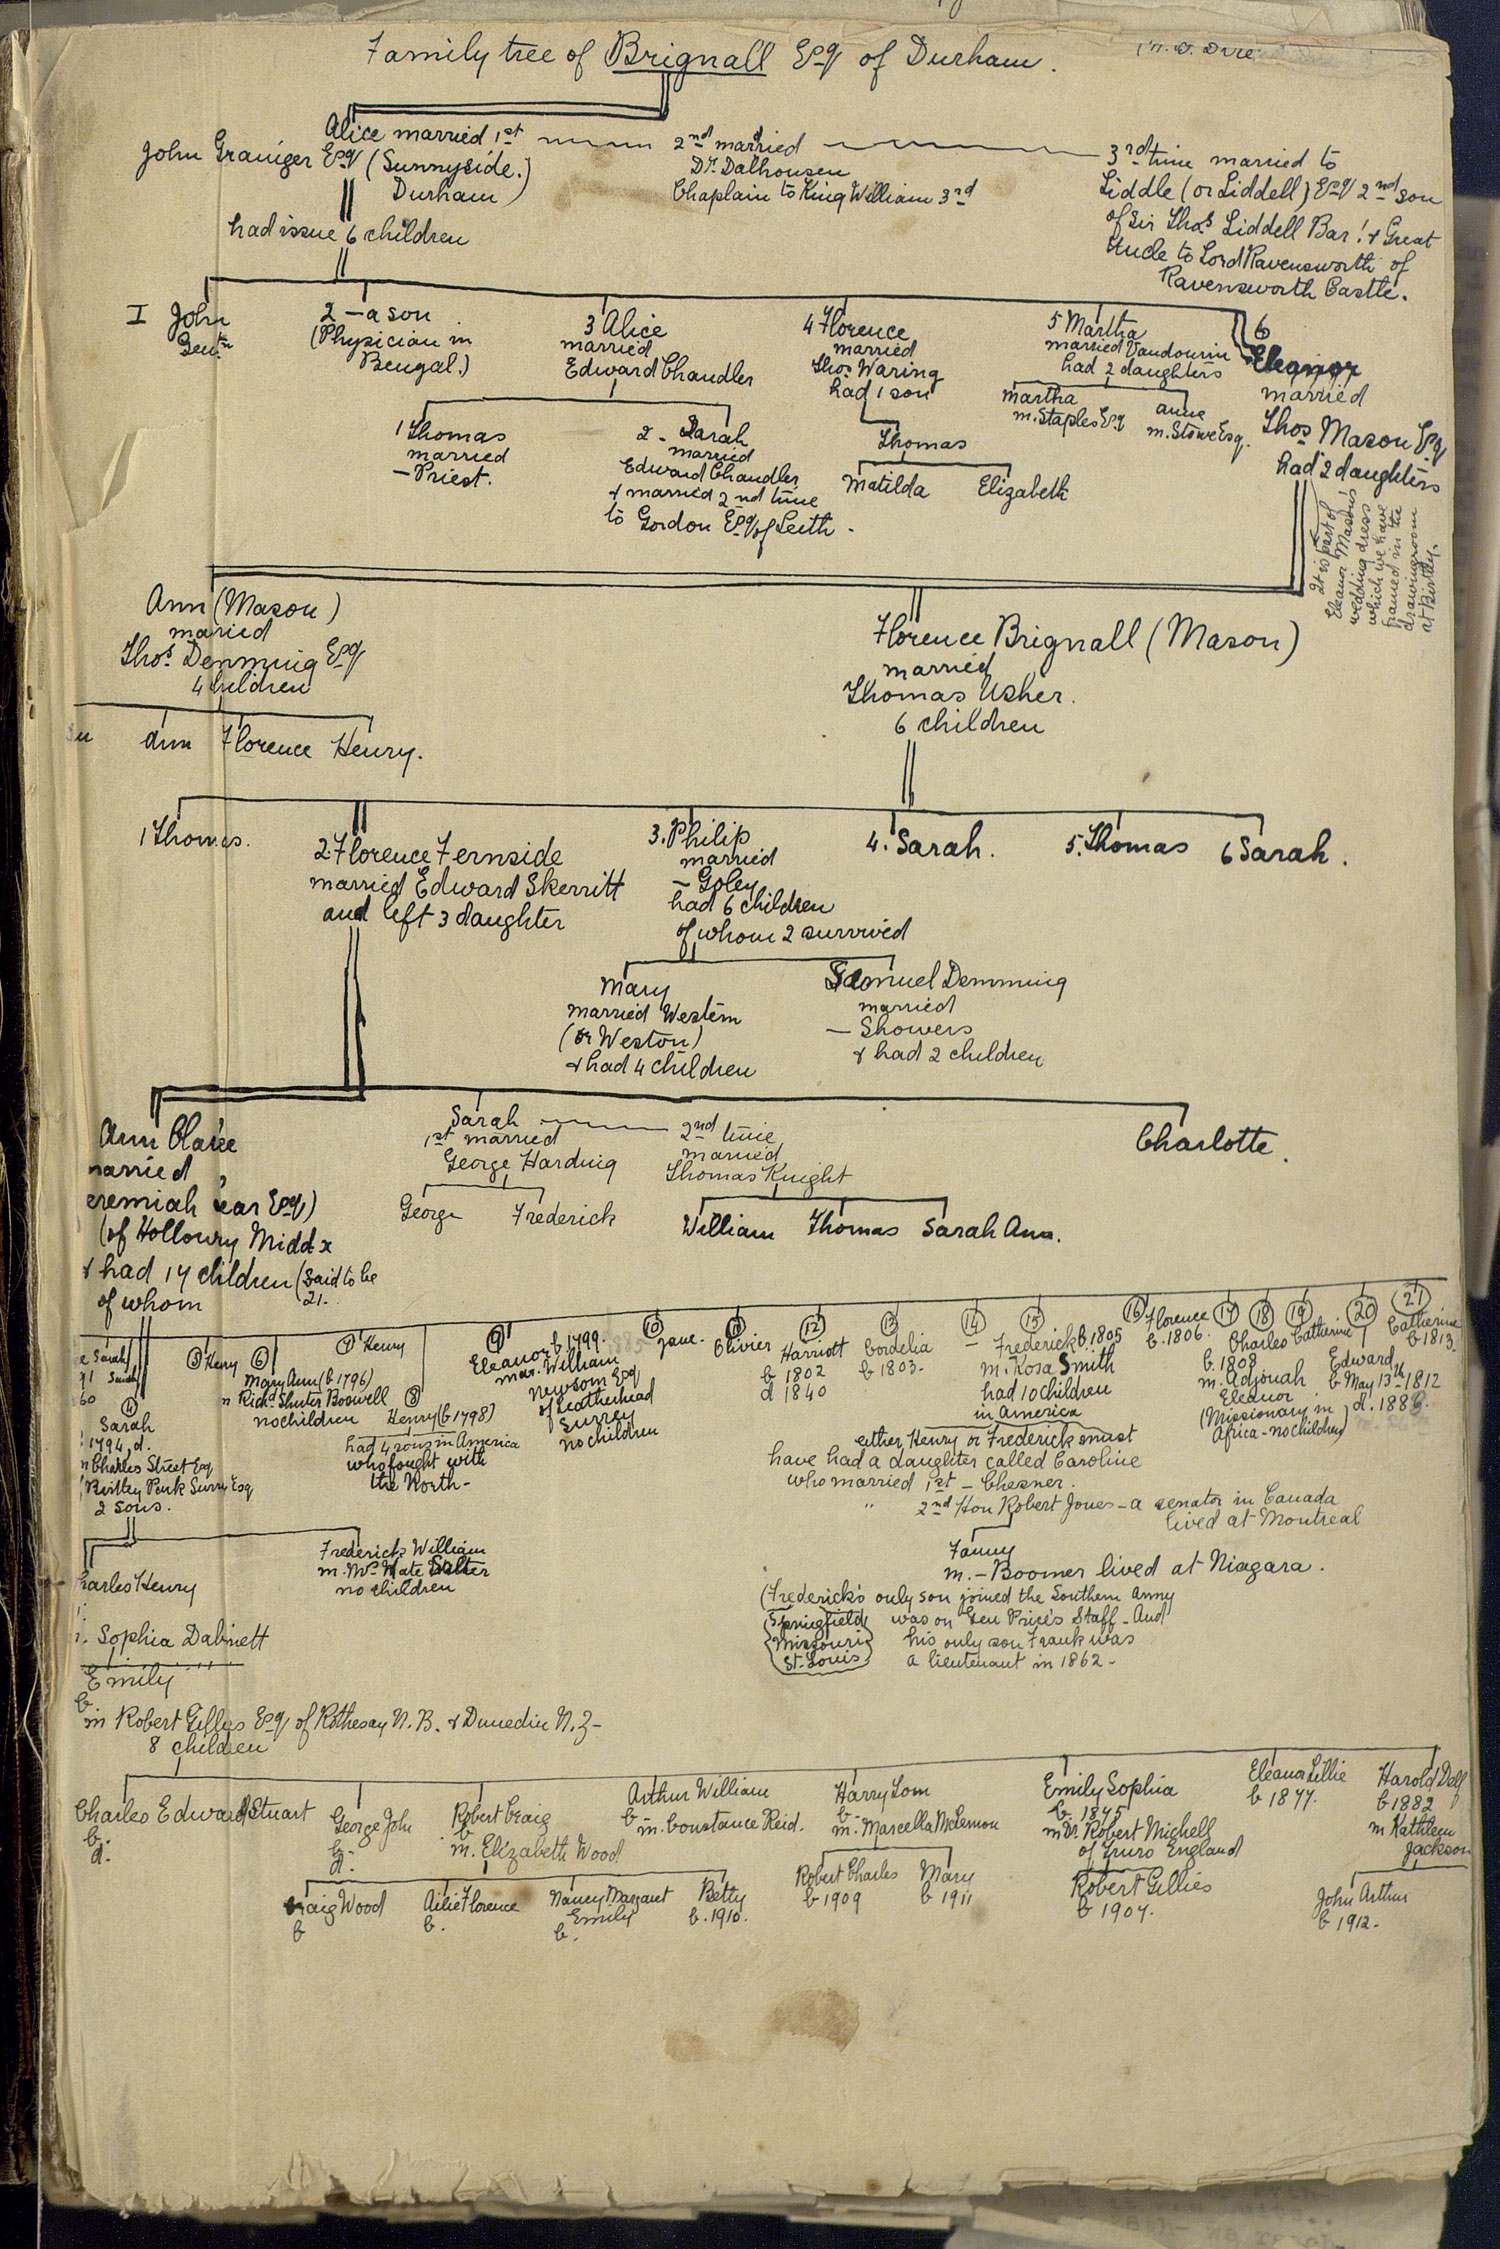 Family tree of Brignall Esq of Durham.
Alice married 1st
John Grainger Esq (Sunnyside.)
Durham
had issue 6 children
2nd married
Dr. Dalhousen
Chaplain to King William 3rd
3rd time married to
Liddle (or Liddell) Esq 2nd son
of Sir Thos Liddell Bar! & Great
Uncle to Lord Ravensworth of
Ravensworth Castle.
I John
2 — a son
(Physician in
Bengal.)
3 Alice
married
Edward Chandler
4 Florence
married
Thos Waring
had 1 son
5 Martha
married Vandourin
had 2 daughters
6
Eleanor
married
Thos Mason Esq
had 2 daughters
1 Thomas
married
— Priest.
2 - Sarah
married
Edward Chandler
& married 2nd time
to Gordon Esq of Leith -
Thomas
Matilda Elizabeth
Martha
m. Staples Esq
Anne
m. Stowe Esq.
It is part of
Eleanor Masons
wedding dress
which we have
framed in the
drawingroom
at Birtley.
Ann (Mason)
married
Thos. Demming Esq
4 children
Ann Florence Henry.
Florence Brignall (Mason)
married
Thomas Usher.
6 children
1 Thomas.
2. Florence Fernside
married Edward Skerritt
and left 3 daughter
3. Philip
married
— Goley
had 6 children
of whom 2 survived
4. Sarah.
5. Thomas
6 Sarah.
Mary
married Western
(or Weston)
& had 4 children
Samuel Demming
married
— Showers
& had 2 children
Ann Claire
married
eremiah ear Esq)
(of Holloway Middx
& had 14 children (said to be
of whom 21.
Sarah
1st married
George Harding
2nd time
married
Thomas Knight
Charlotte.
George Frederick
William Thomas Sarah Ann.
Sarah
④
Sarah
1794, d.
Charles Street Esq
Birtley Park Surry Esq
2 sons.
⑤ Henry
⑥
Mary Ann (b 1796)
m Richd Shuter Boswell
no children
⑦ Henry
⑧
Henry (b 1798)
had 4 sons in America
who fought with
the North -
⑨
Eleanor b 1799.
mar. William
Newsom Esq
of Leatherhead
Surrey
no children
⑩ Jane.
⑪ Olivier
⑫
Harriott
b 1802
d 1840
⑬
Cordelia
b 1803.
⑭
—
⑮
Frederick b. 1805
m. Rosa Smith
had 10 children
in America
⑯ Florence
b. 1806.
⑰
⑱
Charles
b. 1808
m. Adjouah
Eleanor
(Missionary in
Africa - no children)
⑲
Catherine
⑳
Edward
b May 13th 1812
㉑
Catherine
b 1813.
either Henry or Frederick must
have had a daughter called Caroline
who married 1st — Chesner.
" 2nd Hon Robert Jones - a senator in Canada
lived at Montreal
Fanny
m. — Boomer lived at Niagara.
(Frederick's only son joined the Southern Army
(Springfield was on Gen Price's Staff - And
Missouri his only son Frank was
St. Louis a lieutenant in 1862 -
harles Henry
Frederick William
no children
Sophia Dabinett
Emily
b
m Robert Gillies Esq of Rothesay N.B. & Dunedin N.Z -
8 children
Charles Edward Stuart
b.
d.
George John
b.
d.
Robert Craig
b
m. Elizabeth Wood
Arthur William
b
m. Constance Reid.
Harry Tom
b
m. Marcella McLernon
Emily Sophia
b. 1875
m Dr. Robert Michell
of Truro England
Eleanor Lillie
b 1877.
Harold Delf
b 1882
m Kathleen
Jackson
raig Wood
b
Ailie Florence
b.
Nancy Margaret
Emily
b.
Betty
b. 1910.
Robert Charles
b 1909
Mary
b 1911
Robert Gillies
b 1907.
John Arthur
b 1912.